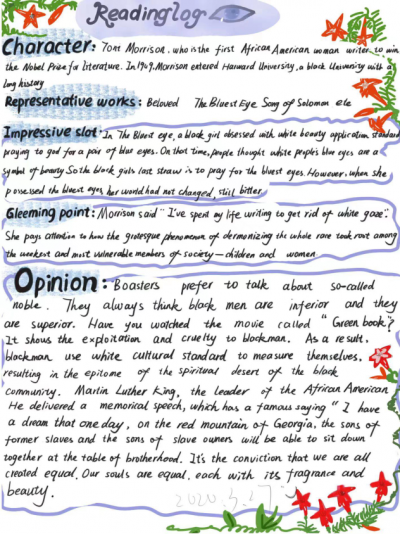 Readinglog
Character: Toni Morrison, who is the first African American woman writer to win
the Nobel Prize for Literature. In 1949, Morrison entered Harward University, a black University with a
long history
Representative works: Beloved The Bluest Eye Song of Solomon etc
Impressive slot: In The Bluest eye, a black girl obsessed with white beauty application standard
praying to god for a pair of blue eyes. On that time, people thought white people's blue eyes are a
symbol of beauty. So the black girl's last straw is to pray for the bluest eyes. However, when she
possessed the bluest eyes, her world had not changed, still bitter.
Gleeming point: Morrison said "I've spent my life writing to get rid of white gaze".
She pays attention to how the grotesque phenomenon of dermonizing the whole race took root among
the weakest and most vulnerable members of society—children and women
Opinion: Boasters prefer to talk about so-called
noble. They always think black men are inferior and they
are superior. Have you watched the movie called "Green book?
It shows the exploitation and cruelty to blackman. As a result,
blackman use white cultural standard to measure themselves,
resulting in the epitome of the spiritual desert of the black
community. Martin Luther King, the leader of the African American
He delivered a memorical speech, which has a famous saying "I have
a dream that one day, on the red mountain of Georgia, the sons of
former slaves and the sons of slave owners will be able to sit down
together at the table of brotherhood. It's the conviction that we are all
created equal. Our souls are equal, each with its fragrance and
beauty.
2020.3.27